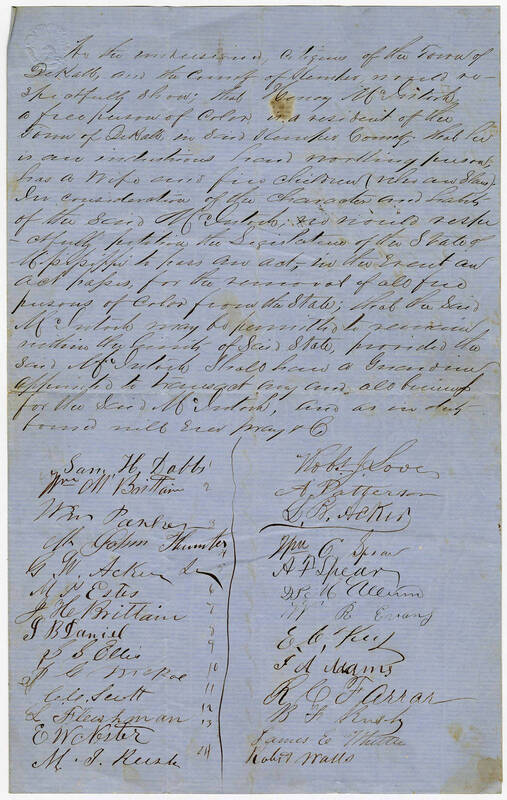 We the undersigned, citizens of the Town of
DeKalb, and the County of Kemper, would re-
spectfully show; that Henry McIntosh
a free person of Color is a resident of the
Town of DeKalb in Said Kemper County, that he
is an industrious hard working person,
has a Wife and five children (who are Slaves)
In consideration of the character and habits
of the Said McIntosh, we would respe
-ctfully petition the Legislature of the State of
Mississippi to pass an act, in the Event an
act passes, for the removal of all free
persons of Color from the State; that the Said
McIntosh may be permitted to remain
within the limits of Said State, provided the
Said McIntosh Shall have a Guardian
appointed to transact any and all business
for the Said McIntosh, and as in duty
bound will Ever pray &C
Sam. H. Dobbs
Wm M Brittain 2
Wm 3
John
G W. Acker Sr
M P Estes 6
J H Brittain 7
J B Daniel 8
S S Ellis 9
10
C. C. Scott 11
L Fleishman 12
E W Nester 13
M. J. Rush 14
Robt J. Love
A. Patterson
D. R. Acker
Wm C. Spear
A P Spear
R Evans
E. C. Key
J A Adams
R C Farrar
B F Rush
James E
Robert Watts